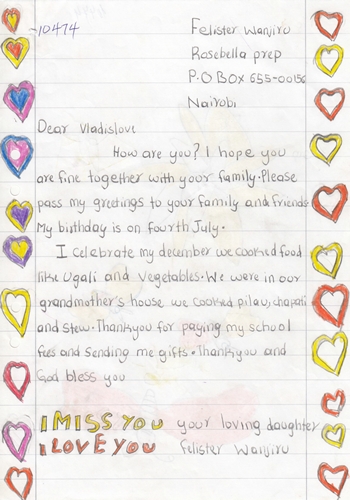 10474
Felister Wanjiru
Rosebella prep
P.O BOX 655-00150
Nairobi
Dear Vladislove
How are you? I hope you
are fine together with your family. Please
pass my greetings to your family and friends
My birthday is on fourth July.
I celebrate my december we cooked food
like Ugali and vegetables. We were in our
grandmother's house we cooked pilau, chapati
and stew. Thankyou for paying my school
fees and sending me gifts. Thankyou and
God bless you
I MISS YOU your loving daughter
I LOVE YOU Felister Wanjiru